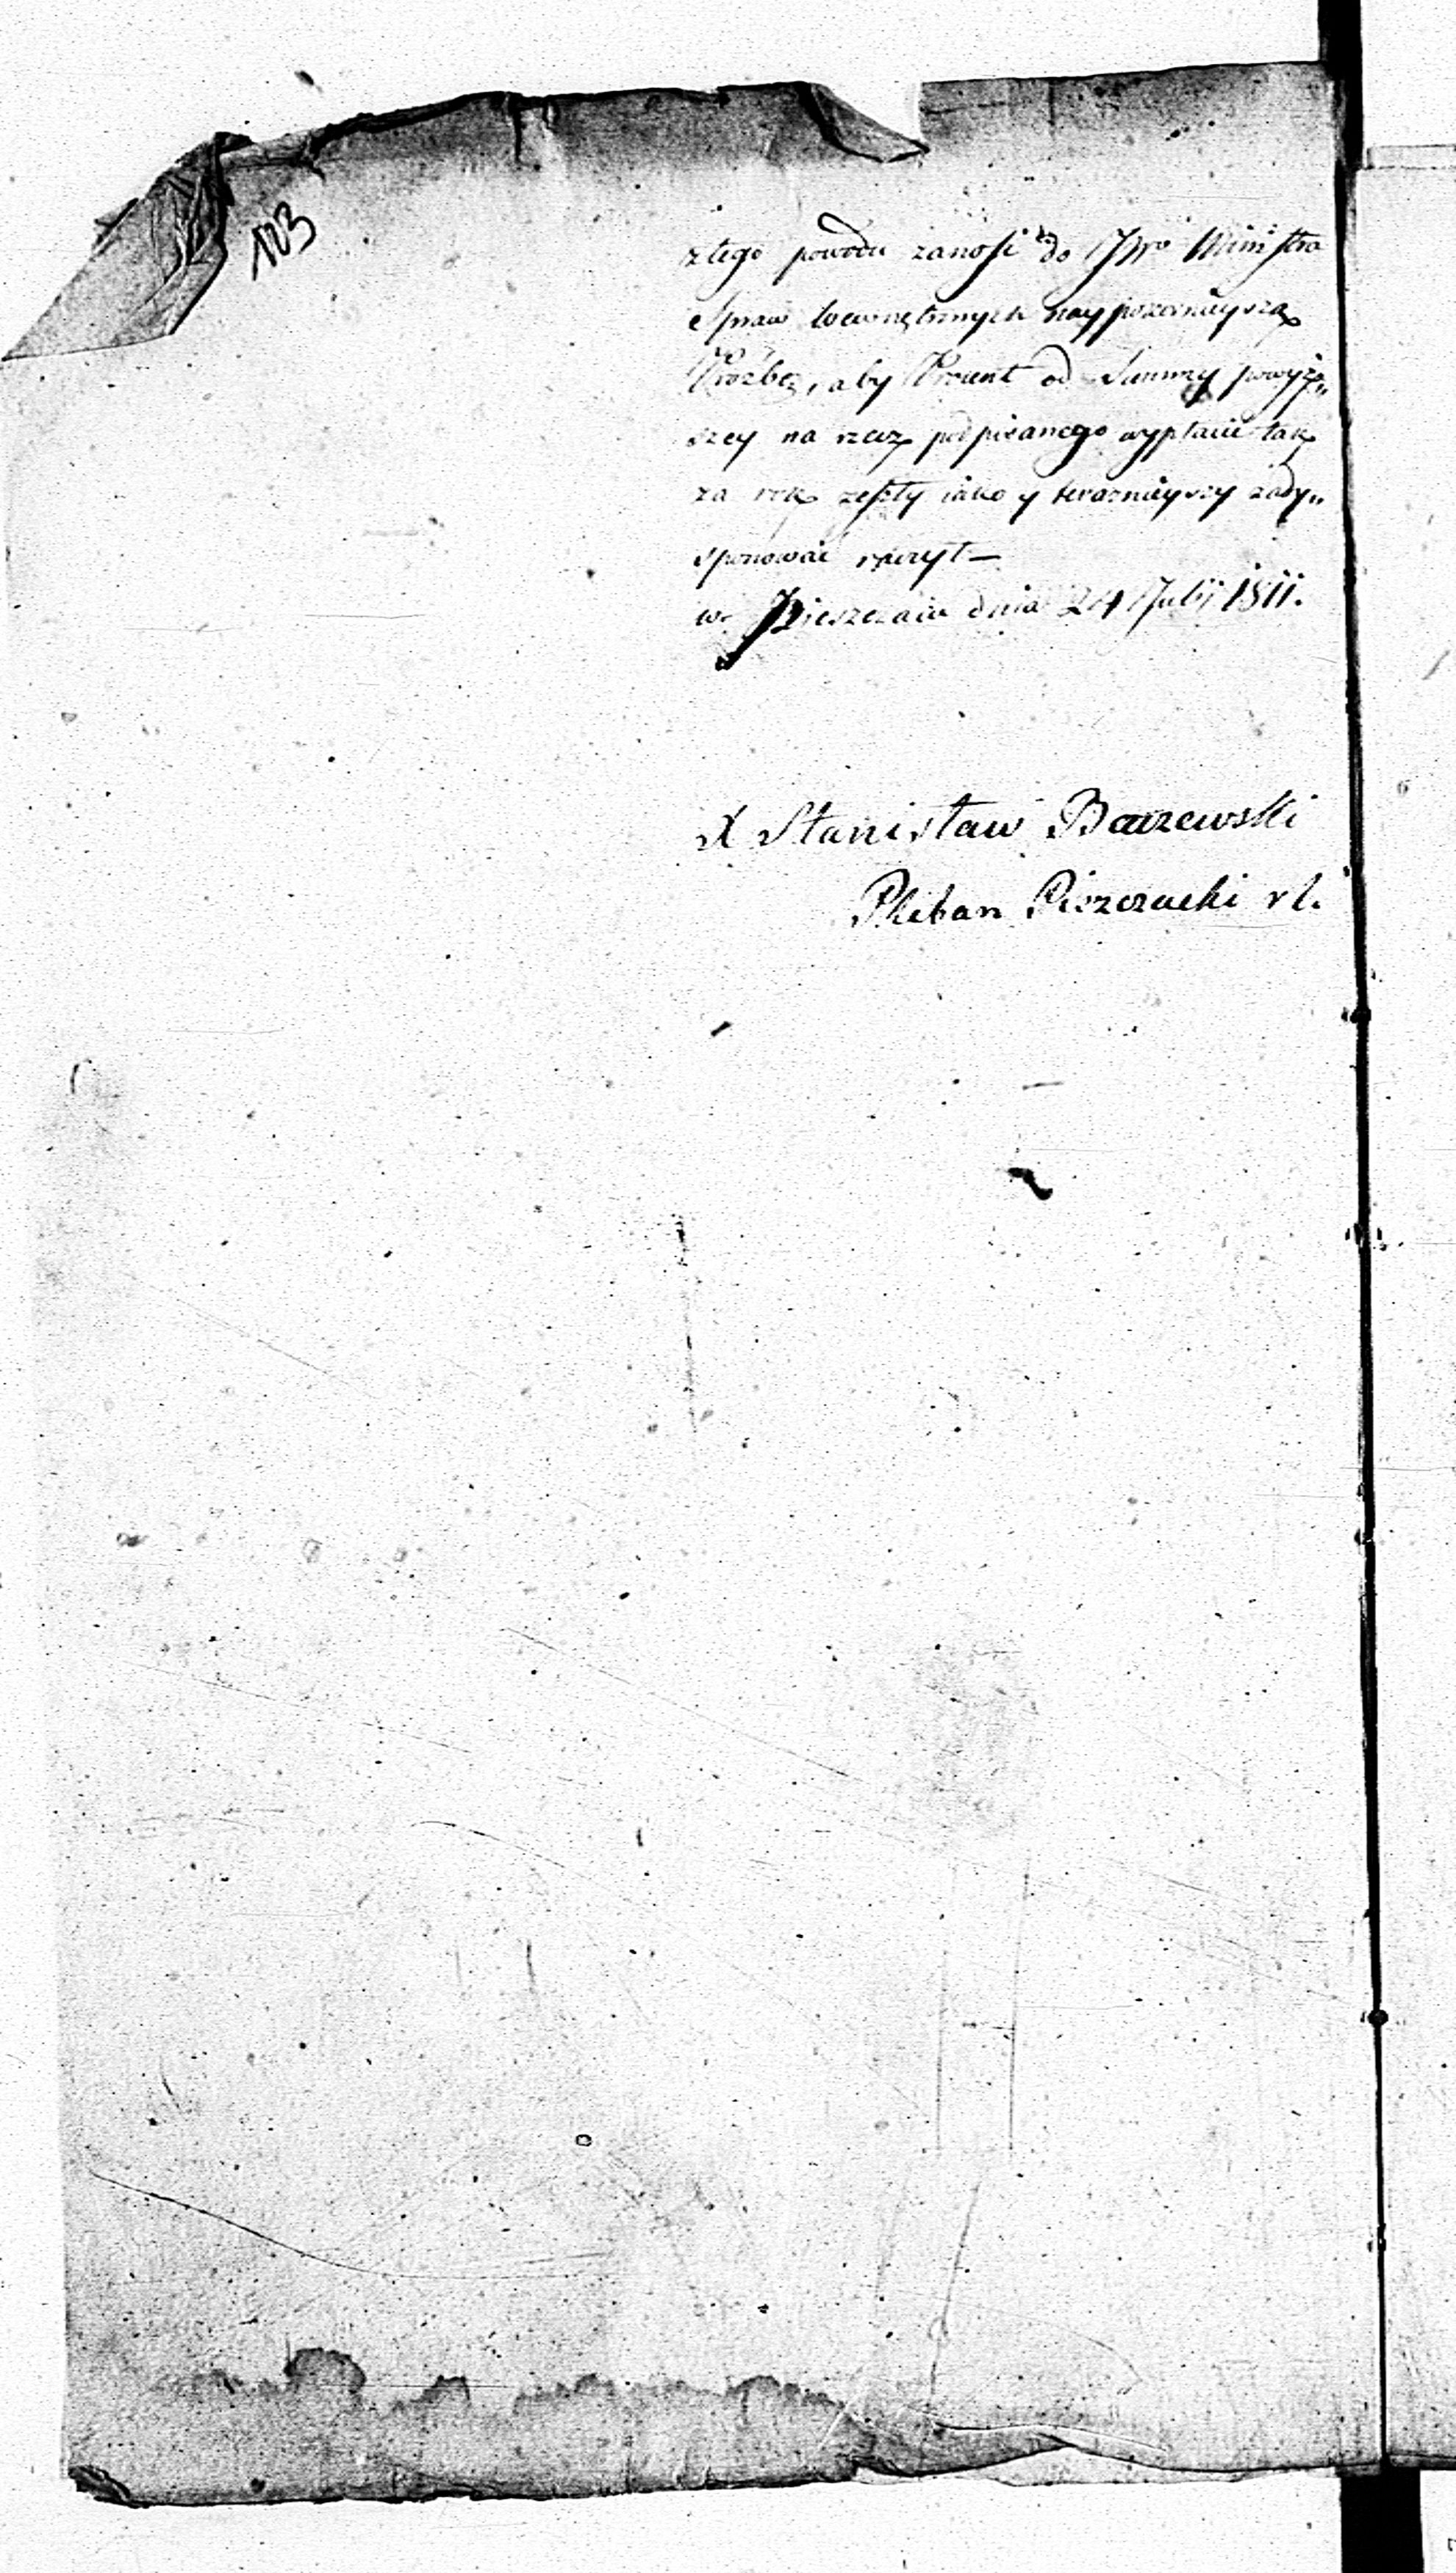 103
z tego powodu zanosi do JWo Ministra
Spraw Wewnętrznych naypokornieyszą
Prozbę, aby Procent od Summy powyż„
szey na rzecz podpisanego wypłacić tak
za rok zeszły iako y teraznieyszy zady„
sponować raczył —
w Pieszczacu dnia 24 Julij 1811.
X Stanisław Barzewski
Pleban Piszczacki rł.